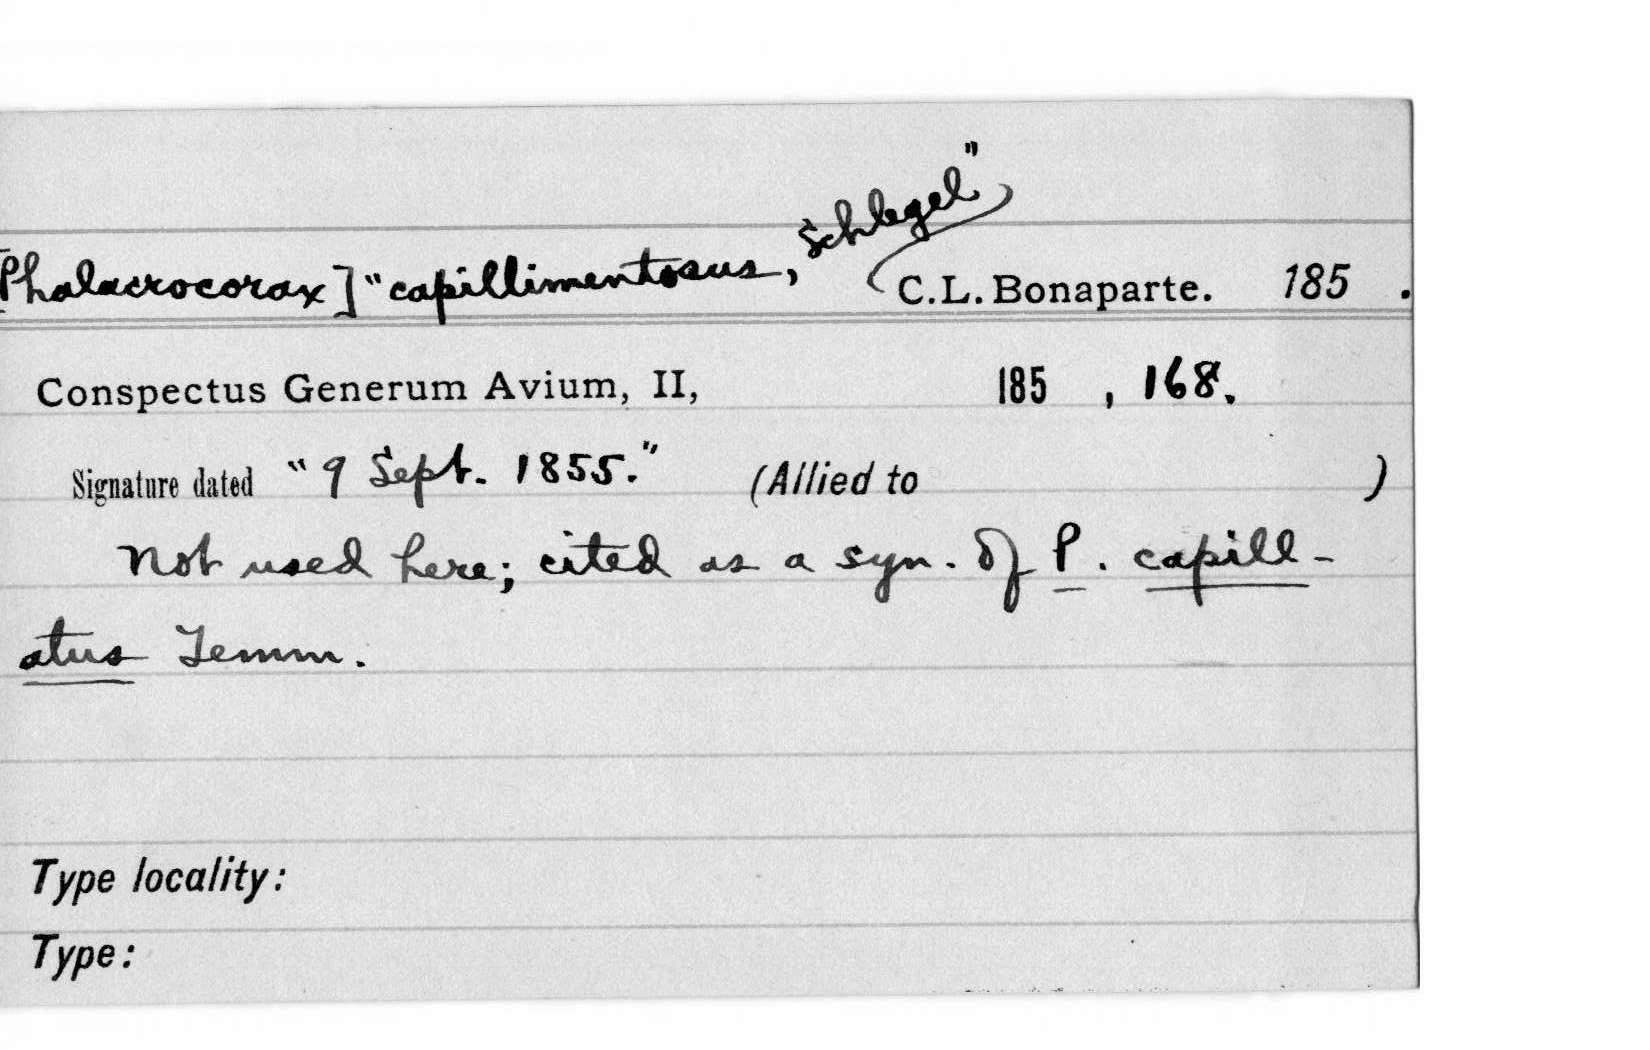 [Phalacrocorax] "capillimentosus, Schlegel" C.L. Bonaparte. 185 .
Conspectus Generum Avium, II, 185 , 168.
Signature dated "9 Sept. 1855." (Allied to )
Not used here; cited as a syn. of P. capill-
atus Temm.
Type locality:
Type: